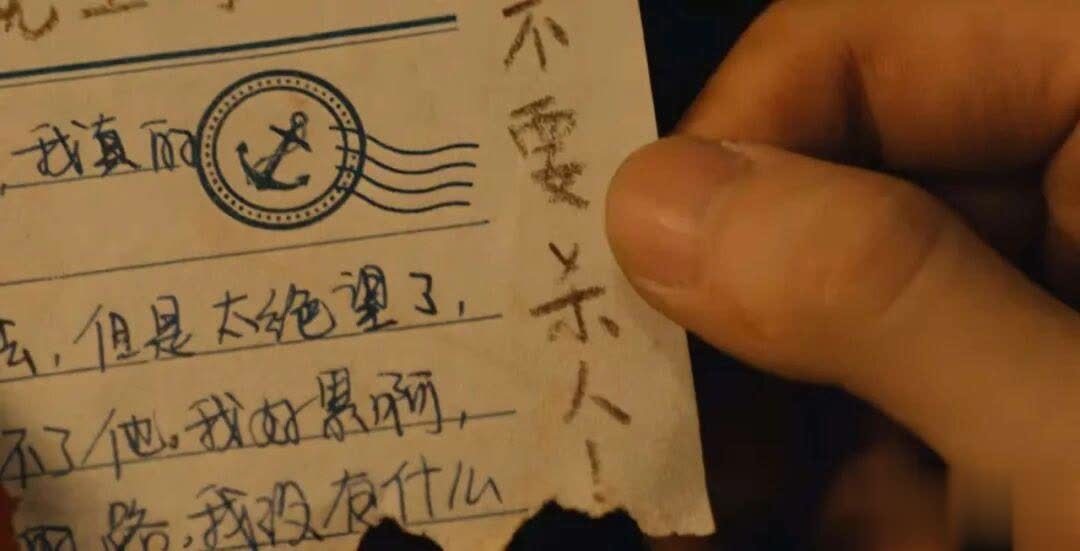 ，我真的
去，但是太绝望了，
不了他。我好累啊，
路，我没有什么
不要杀人！